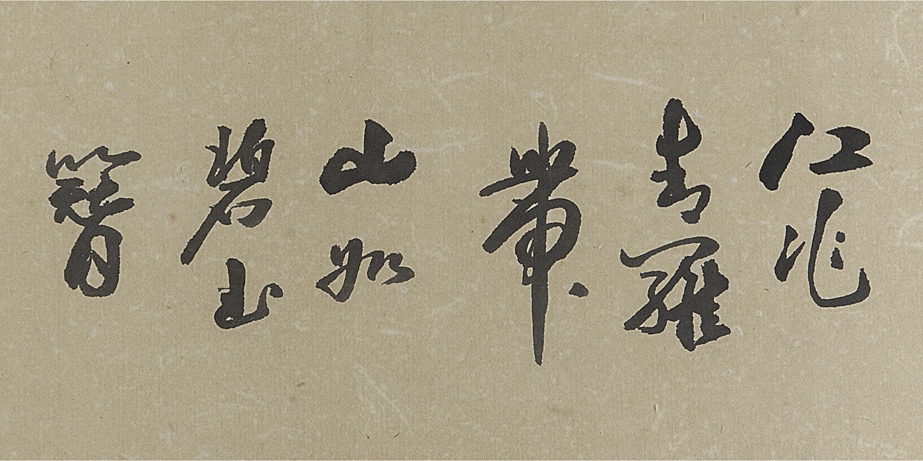 江作
青羅
帶
山如
碧玉
簪